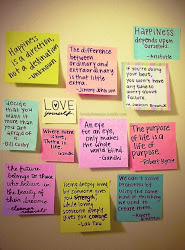 Happiness
is a direction,
not a destination
-unknown
The difference
between
ordinary and
extraordinary
is that little
extra.
- Jimmy Johnson
Happiness
depends upon
ourselves.
- Aristotle
If you're doing
your best,
you won't
have any
time to worry
about
failure.
Decide
that you
want it
more than
you are
afraid of
it.
- Bill Cosby
LOVE
yourself.
Where there
is love,
There is
life.
- Gandhi
An eye
for an eye,
only makes
the whole
world blind.
- Gandhi
The purpose
of life is
a life of
purpose.
- Robert Byrne
The future
belongs to those
who believe
in the beauty
of their dreams
Being deeply loved
by someone gives
you strength,
while loving
someone deeply
gives you courage.
- Lao Tzu
We can't solve
problems by
using the same
kind of thinking
we used to
create them.